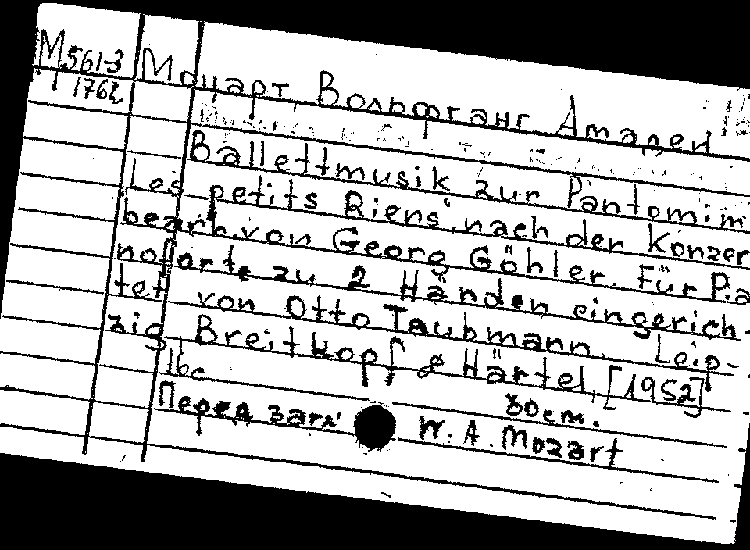 М561-3 Моцарт, Вольфганг Амадей
1762
Ballettmusik zur Pantomim
"Les petits Riens", nach der Konzer
bearb. von Georg Göhler. Für Pia
noforte zu 2 Händen eingerich-
tet von Otto Taubmann. Leip-
zig, Breitkopf & Härtel, [1952]
16c 30cm.
Перед загл. W. A. Mozart